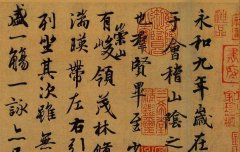 永和九年歲在
于會稽山陰之
也羣賢畢至少
有崇山峻領茂林脩
湍暎帶左右引
列坐其次雖無
盛一觴一詠